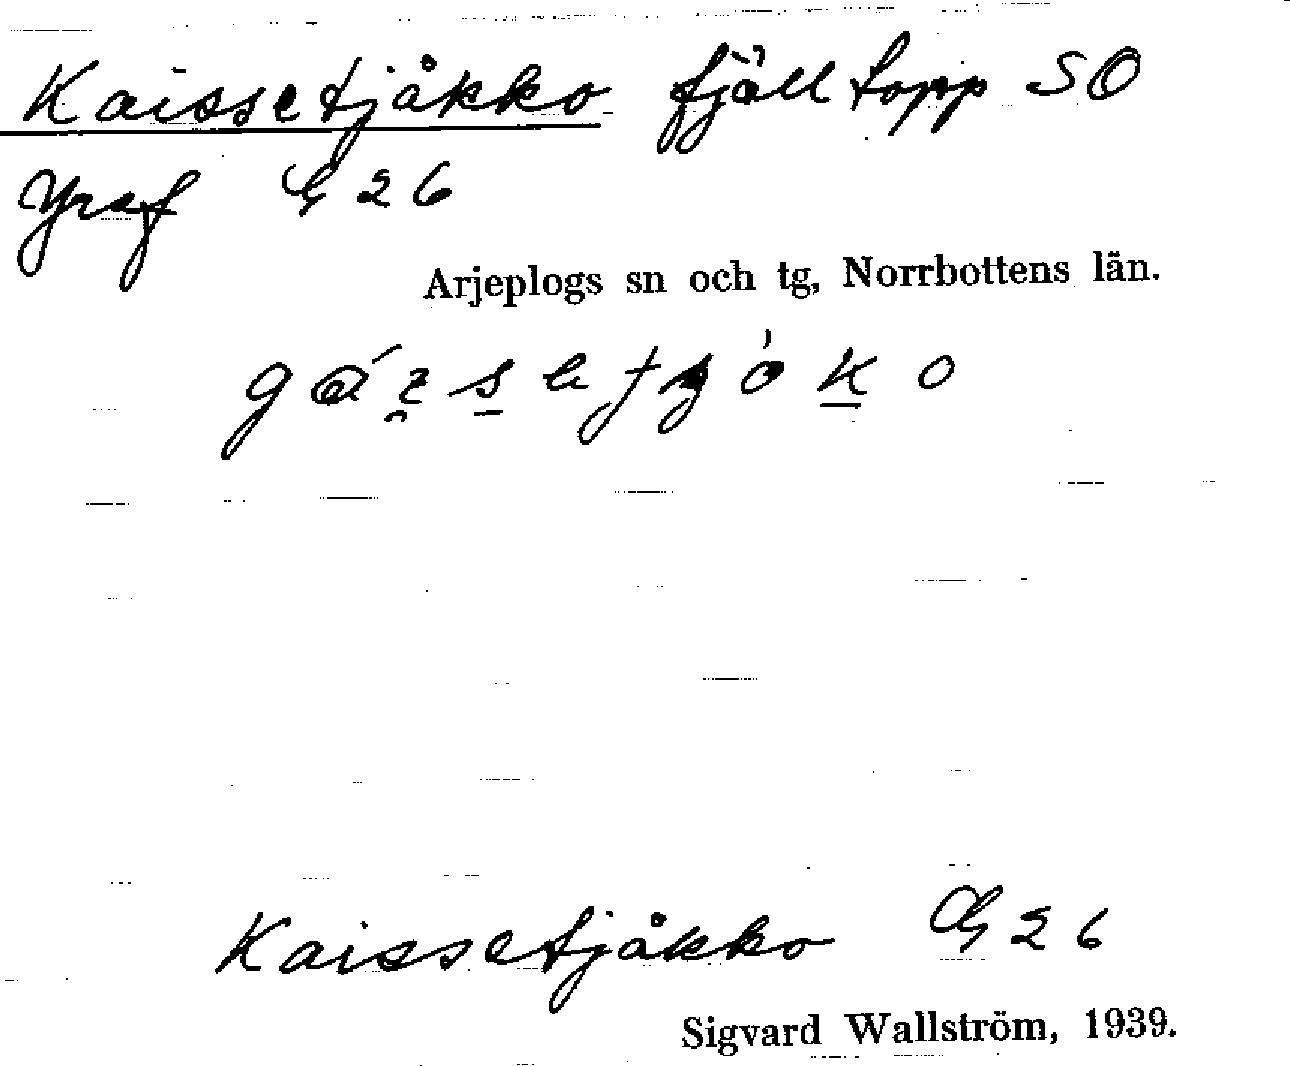 Kaissetjåkko fjälltopp SO
Yraf G 26
Arjeplogs sn och tg, Norrbottens län.
Kaissetjåkko G 26
Sigvard Wallström, 1939.